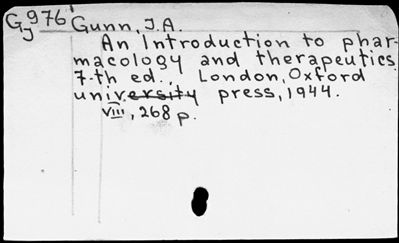 G976¹ Gunn, J.A.
J
An Introduction to phar-
macology and therapeutics
7-th ed., London, Oxford
university press, 1944.
VIII, 268 p.